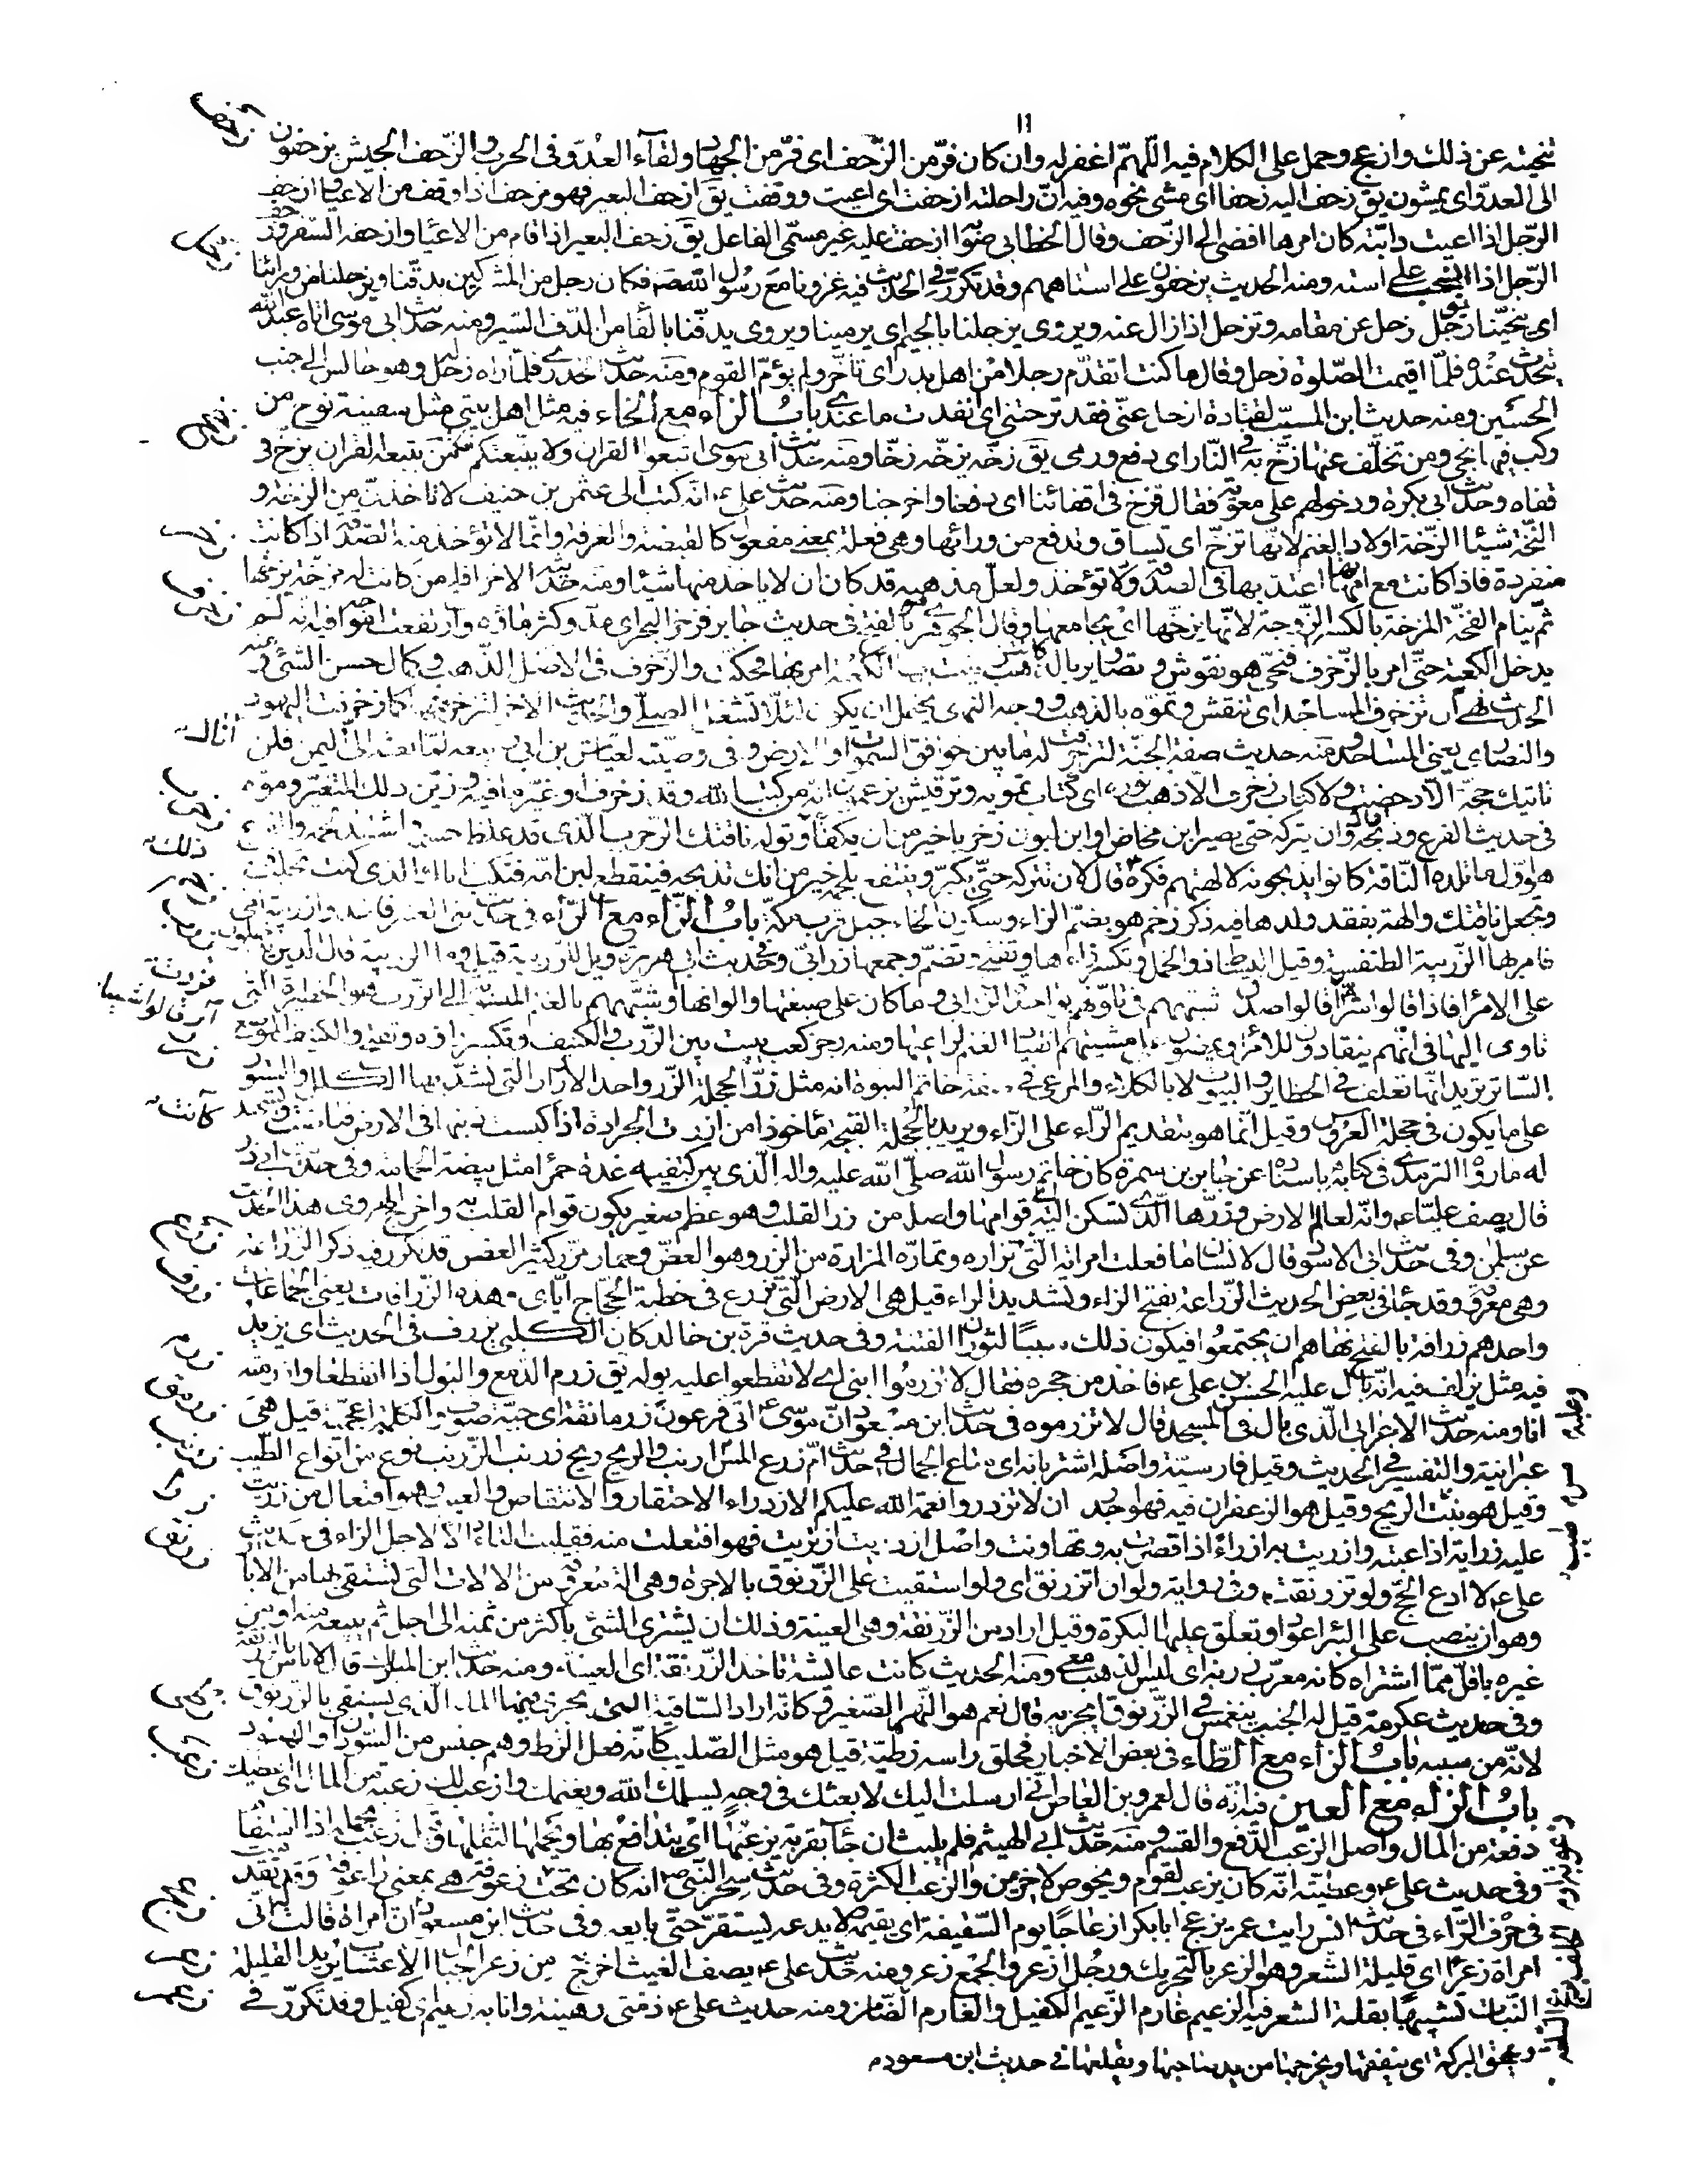 ١١
نحيته عن ذلك وازعج وحمل على الكلام فيه اللّهمّ اغفر له وان كان فرّ من الزّحف اى فرّ من الجهاد ولقاء العدوّ فى الحرب والزّحف الجيش يزحفون
زحف
الى العدوّ اى يمشون يق زحف اليه زحفا اى مشى نحوه وفيه انّ راحلته ازحفت اى اعيت ووقفت يق ازحف البعير فهو مزحف اذا وقف من الاعياء وازحف
الرّجل اذا اعيت دابّته كان امرها افضى الى الزّحف وقال الخطابى صوابه ازحفت عليه غير مسمّى الفاعل يق زحف البعير اذا قام من الاعياء وازحفه السّفر وزحف
زحل
الرّجل اذا انسحب على استه ومنه الحديث يزحفون على استاههم وقد تكرّر فى الحديث فيه غزونا مع رسول الله ص فكان رجل من المشركين يدقّنا ويزحلنا من ورائنا
اى ينحّينا يق زحل زحل عن مقامه وتزحل اذا زال عنه ويروى يزجلنا بالجيم اى يرمينا ويروى يدفّنا بالفا من الدّف السّير ومنه حديث ابى موسى اتاه عبد الله
يتحدّث عنده فلمّا اقيمت الصّلوة زحل وقال ما كنت اتقدّم رجلا من اهل بدر اى تاخّر ولم يؤمّ القوم ومنه حديث الخدرى فلمّا راه زحل له وهو جالس الى جنب
الحسين ومنه حديث ابن المسيّب لقتادة ازحل عنّى فقد نزحتنى اى نفدت ما عندى باب الزاء مع الخاء فيه مثل اهل بيتى مثل سفينة نوح من
زخخ
ركب فيها نجى ومن تخلّف عنها زخّ به فى النّار اى دفع ورمى يق زخّه يزخّه زخّا ومنه حديث ابى موسى اتبعوا القران ولا يتّبعنكم فمن يتبعه القران يزخّ فى
قفاه وحديث ابى بكرة ودخولهم على معوية فقال فزخّ فى اقفائنا اى دفعنا واخرجنا ومنه حديث على ع انّه كتب الى عثمن بن حنيف لا تاخذنّ من الزخّة و
النّخّة شيئا الزّخّة اولاد الغنم لانّها تزخّ اى تساق وتدفع من ورائها وهى فعلة بمعنى مفعول كالقبضة والغرفة وانّما لا تؤخذ منها الصّدقة اذا كانت
زخر
منفردة فاذا كانت مع امّهاتها اعتدّ بها فى الصدقة ولا تؤخذ ولعلّ مذهبه قد كان ان لا ياخذ منها شيئا ومنه حديثه الاخر افلح من كانت له مزخّة يزخّها
ثمّ ينام الفخّة المزخّة بالكسر الزّوجة لانّها يزخّها اى يجامعها وقال الجوهرى هو بالفتح فى حديث جابر فزخر البحر اى مدّ وكثر ماؤه وارتفعت امواجه فيه انّه لم
زخرف
يدخل الكعبة حتّى امر بالزّخرف فنحّى هو نقوش وتصاوير بالذّهب كانت زيّنت بها الكعبة امر بها فحكّت والزّخرف فى الاصل الذّهب وكمال حسن الشّىء ومنه
الحديث نهى ان تزخرف المساجد اى تنقش وتموّه بالذهب ووجه النهى يحتمل ان يكون لئلّا تشغل المصلّى والحديث الاخر لتزخرفنّها كما زخرفت اليهود
والنصارى يعنى المساجد ومنه حديث صفة الجنّة لتزخرفت له ما بين خوافق السّموات والارض وفى وصيّته لعيّاش بن ابى ربيعه لمّا بعثه الى اليمن فلن
تاتيك حجّة الّا دحضت ولا كتاب زخرف الّا ذهب نوره اى كتاب تمويه وترقيش يزعمون انّه من كتب الله وقد زخرف او غيّر ما فيه وزيّن ذلك التّغيير وموّه
زخرب
فى حديث الفرع وذبحه قال وان يتركه حتى يصير ابن مخاض او ابن لبون زخربّا خير من ان يكفأ اناؤك وتوله ناقتك الزّخرب الّذى قد غلظ جسمه واشتدّ لحمه والفرع
هو اوّل ما تلده النّاقة كانوا يذبحونه لالهتهم فكره ذلك قال لان تتركه حتّى يكبر وينتفع بلحمه خير من انّك تذبحه فينقطع لبن امّه فتكبّ اناءك الذى كنت تحلب فيه
زخم
وتجعل ناقتك والهة بفقد ولدها فيه ذكر زخم هو بضمّ الزاء وسكون الخاء جبل قرب مكّة باب الزاء مع الرّاء فى حديث بنى العنبر فاخذوا زربيّة امى
زرب
فامر بها الزّربيّة الطنفسة وقيل البساط ذو الخمل وتكسر زاءها وتفتح وتضمّ وجمعها زرابىّ وفى حديث ابى هريرة ويل للزّربيّة قيل وما الزربيّة قال الّذين يدخلون
على الامراء فاذا قالوا شرّا او قالوا شيئا قالوا صدق شبّههم فى تلوّنهم بواحدة الزرابى وما كان على صبغتها والوانها وشبّههم بالغنم المنسوبة الى الزّرب وهو الحظيرة التى
تاوى اليها فى انّهم ينقادون للامراء ويمضون على مشيّتهم انقياد الغنم لراعيها ومنه رجز كعب تبيت بين الزّرب والكنيف وتكسر زاؤه وتفتح والكنيف الموضع
زرر
السّاتر يريد انّها تعلف فى الحظائر والبيوت لا بالكلاء والمرعى فى صفة خاتم النبوّة انه مثل زرّ الحجلة الزّرّ واحد الازرار التى تشدّ بها الكلل والستور
على ما يكون فى حجلة العروس وقيل انّما هو بتقديم الرّاء على الزّاء ويريد بالحجلة القبجة ماخوذ من ارزّت الجرادة اذا كبست ذنبها فى الارض فباضت ويشهد
له ما رواه الترمذى فى كتابه باسناده عن جابر بن سمرة كان خاتم رسول الله صلّى الله عليه واله الّذى بين كتفيه غدة حمراء مثل بيضة الحمامة وفى حديث ابى ذر
قال يصف عليّا ع وانّه لعالم الارض وزرّها الّذى تسكن اليه اى قوامها واصله من زرّ القلب وهو عظم صغير يكون قوام القلب به واخرج الهروى هذا الحديث
زرع
عن سلمن وفى حديث ابى الاسود قال لانسان ما فعلت امراته الّتى كانت تزارّه وتمارّه المزارّة من الزرّ وهو العضّ وحمار مزرّ كثير العضّ قد تكرّر فيه ذكر الزراعة
وهى معروفة وقد جاء فى بعض الحديث الزّرّاعة بفتح الزاء وتشديد الراء قيل هى الارض الّتى تزرع فى خطبة الحجّاج ايّاى وهذه الزّرافات يعنى الجماعات
زرف
واحدهم زرافة بالفتح نهاهم ان يجتمعوا فيكون ذلك سببا لثوران الفتنة وفى حديث قرة بن خالد كان الكلبى يزرف فى الحديث اى يزيد
فيه مثل يزلف فيه انّه بال عليه الحسن بن على ع فاخذ من حجره فقال لا تزرموا ابنى اى لا تقطعوا عليه بوله يق زرم الدّمع والبول اذا انقطعا وازرمته
زرم
انا ومنه حديث الاعرابى الّذى بال فى المسجد قال لا تزرموه فى حديث ابن مسعود انّ موسى ع اتى فرعون وعليه زرمانقة اى جبّة صوف والكلمة اعجميّة قيل هى
عبرانية والتفسير فى الحديث وقيل فارسيّة واصله اشتربانه اى متاع الجمال فى حديث امّ زرع المسّ ارنب والريح ريح زرنب الزّرنب نوع من انواع الطّيب
زرنب
وقيل هو نبت طيب الريح وقيل هو الزعفران فيه فهو اجدر ان لا تزدروا نعمة الله عليكم الازدراء الاحتقار والانتقاص والعيب وهو افتعال من زريت
عليه زراية اذا عبته وازريت به ازراء اذا قصّرت به وتهاونت واصل ازدريت ازتريت فهو افتعلت منه فقلبت التاء دالا لاجل الزاء فى حديث
زرنق
على ع لا ادع الحجّ ولو تزرنقت وفى رواية ولو ان اتزرنق اى ولو استقيت على الزّرنوق بالاجرة وهى الة معروفة من الالات التى يستقى بها من الابار
وهو ان ينصب على البئر اعواد وتعلّق عليها البكرة وقيل اراد من الزّرنقة وهى العينة وذلك ان يشترى الشّىء باكثر من ثمنه الى اجل ثمّ يبيعه منه او من
غيره باقلّ ممّا اشتراه كانه معرّب زرنه اى ليس الذهب معى ومنه الحديث كانت عايشة تاخذ الزّرنقة اى العينة ومنه حديث ابن المبارك قال لا باس بالزرنقة
وفى حديث عكرمة قيل له الجنب ينغمس فى الزّرنوق ايجزيه قال نعم هو النّهر الصّغير وكانّه اراد السّاقية التى يجرى فيها الماء الذى يستقى بالزرنوق
لانّه من سببه باب الزاء مع الطّاء فى بعض الاخبار فحلق راسه زطّيّة قيل هو مثل الصّليب كانّه فعل الزّط وهم جنس من السّودان والهنود
زعب
باب الزاء مع العين فيه انّه قال لعمرو بن العاص انّى ارسلت اليك لابعثك فى وجه يسلّمك الله ويغنمك وازعب لك زعبة من المال اى اعطيك
دفعة من المال واصل الزعب الدّفع والقسم ومنه حديث ابى الهيثم فلم يلبث ان جاء بقربة يزعبها اى يتدافع بها ويحملها لثقلها وقيل زعب بحمله اذا استقام
وفى حديث على ع وعطيّته انّه كان يزعب لقوم ويخوص لاخرين والزعب الكثرة وفى حديث سحر النّبى ص انه كان تحت زعوفة هى بمعنى راعوفة وقد تقدّمت
فى حرف الرّاء فى حديث انس رايت عمر يزعج ابا بكر ازعاجا يوم السّقيفة اى يقيمه ولا يدعه يستقرّ حتّى بايعه وفى حديث ابن مسعود
زعج
انّ امراة قالت انّى امراة زعراء اى قليلة الشعر وهو الزعر بالتحريك ورجل ازعر والجمع زعر ومنه حديث على ع يصف الغيث اخرج به من زعر الجبال الاعشاب يريد القليلة
زعر
النّبات تشبيها بقلة الشعر فيه الزعيم غارم الزّعيم الكفيل والغارم الضّامن ومنه حديث على ع ذمّتى رهينة وانا به زعيم اى كفيل وقد تكرّر فى
زعم
ويمحق البركة اى ينفقها ويخرجها من يد صاحبها ويقلعها فى حديث ابن مسعود